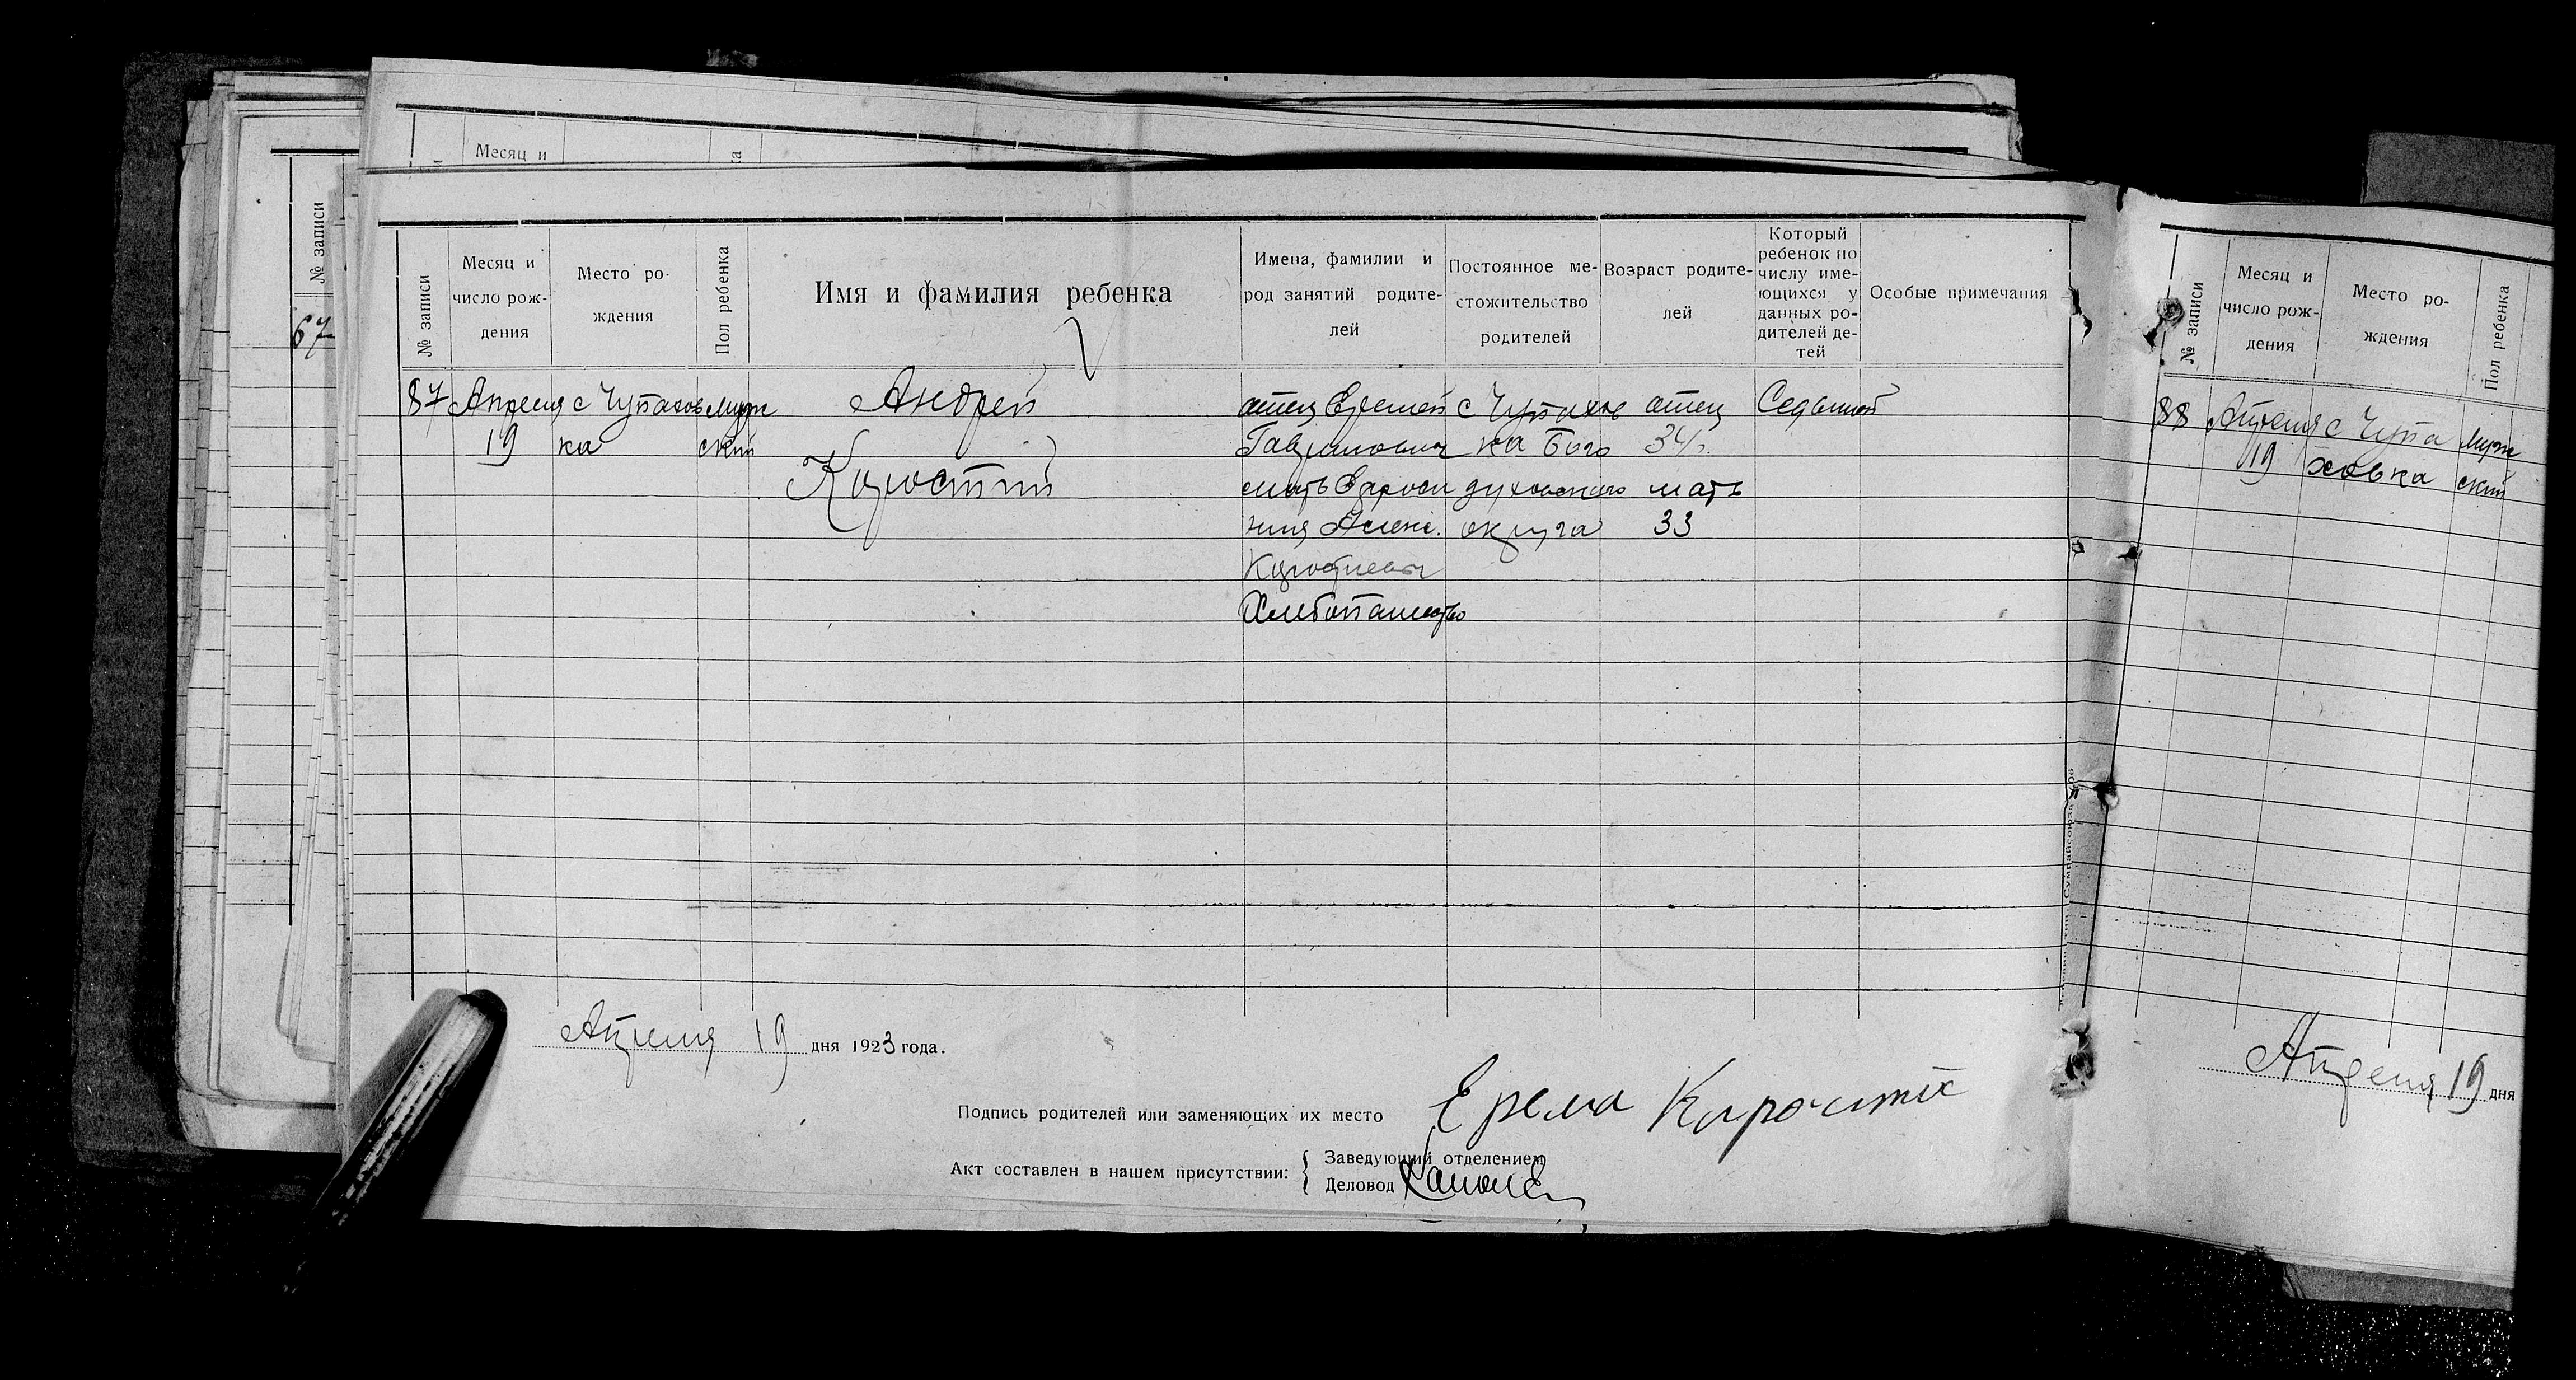 Месяц и
№ записи
67
№ записи
Месяц и число рождения
Место рождения
Пол ребенка
Имя и фамилия ребенка
Имена, фамилии и род занятий родителей
Постоянное местожительство родителей
Возраст родителей
Который ребенок по числу имеющихся у данных родителей детей
Особые примечания
87
Апреля
19
с Чупахов
ка
муж
ский
Андрей
Коростий
отец Еремей
Гаврилович
мать Евроси
ния Алекс.
Хлебопашество
с Чупахов
ка Бого
духовского
округа
отец
34 г.
мать
33
Седьмой
Апреля 19 дня 1923 года.
Подпись родителей или заменяющих их место
Ерема Коростий
Акт составлен в нашем присутствии:
Заведующий отделением
Деловод
№ записи
Месяц и число рождения
Место рождения
Пол ребенка
88
Апреля
19
с Чупа
ховка
муж
ский
Апреля 19 дня